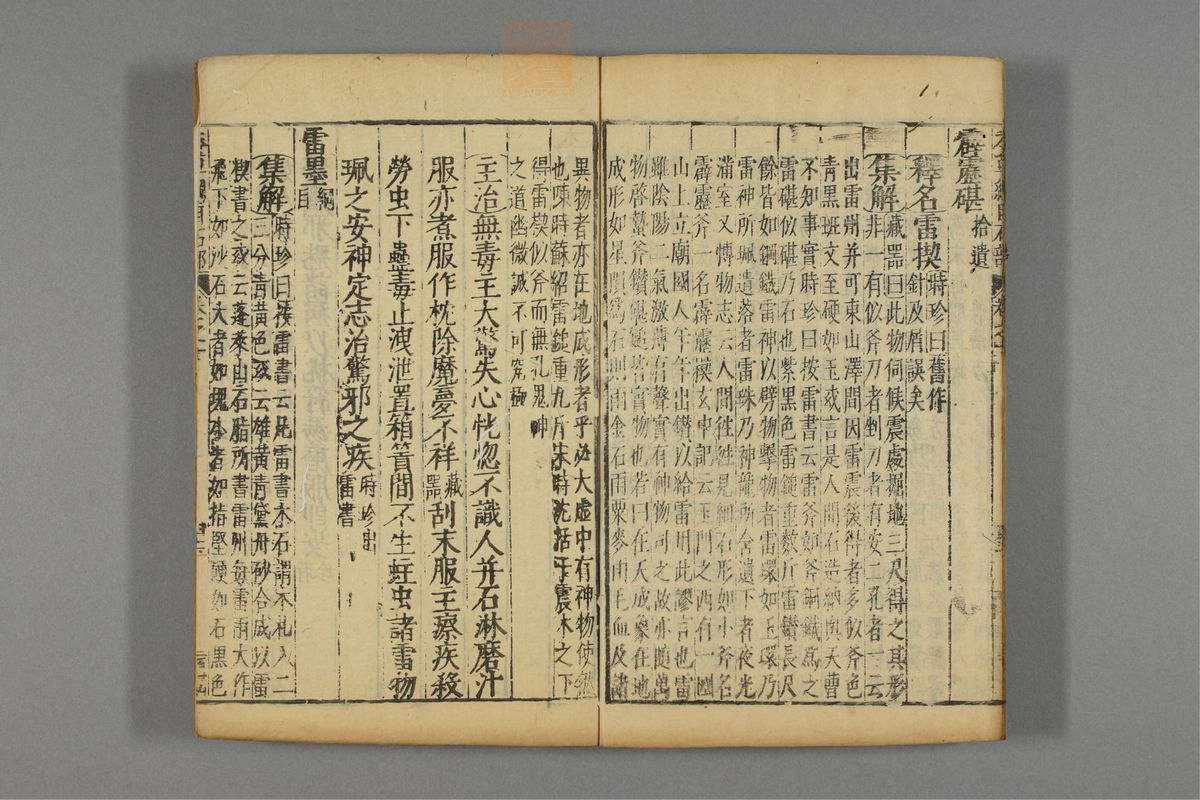 霹靂碪拾遺
釋名雷楔時珍曰舊作
針及屑誤矣
集解藏器曰此物伺候震處掘地三尺得之其形
非一有似斧刀者剉刀者有安二孔者一云
出雷州并河東山澤間因雷震後得者多似斧色
青黑斑文至硬如玉或言是人間石造納與天曹
不知事實時珍曰按雷書云雷斧如斧銅鐵爲之
雷碪似碪乃石也紫黑色雷鎚重數斤雷鑽長尺
餘皆如鋼鐵雷神以劈物擊物者雷環如玉環乃
雷神所珮遺落者雷珠乃神龍所含遺下者夜光
滿室又博物志云人間徃徃見細石形如小斧名
霹靂斧一名霹靂楔玄中記云玉門之西有一國
山上立廟國人年年出鑽以給雷用此謬言也雷
雖陰陽二氣激薄有聲實有神物司之故亦隨萬
物啓蟄斧鑽碪鎚皆實物也若曰在天成象在地
成形如星隕爲石則雨金石雨粟麥雨毛血及諸
異物者亦在地成形者乎必大虛中有神物使然
也陳時蘇紹雷鎚重九斤宋時沈括于震木之下
得雷楔似斧而無孔鬼神
之道幽微誠不可究極
主治無毒主大驚失心恍惚不識人并石淋磨汁
服亦煮服作枕除魔夢不祥藏器刮末服主瘵疾殺
勞虫下蠱毒止洩泄置箱篋間不生蛀虫諸雷物
珮之安神定志治驚邪之疾時珍出雷書
雷墨綱目
集解時珍曰按雷書云凡雷書木石謂木札入二
三分青黃色或云雄黃青黛丹砂合成以雷
楔書之或云蓬萊山石脂所書雷州每雷雨大作
飛下如沙石大者如塊小者如指堅硬如石黑色